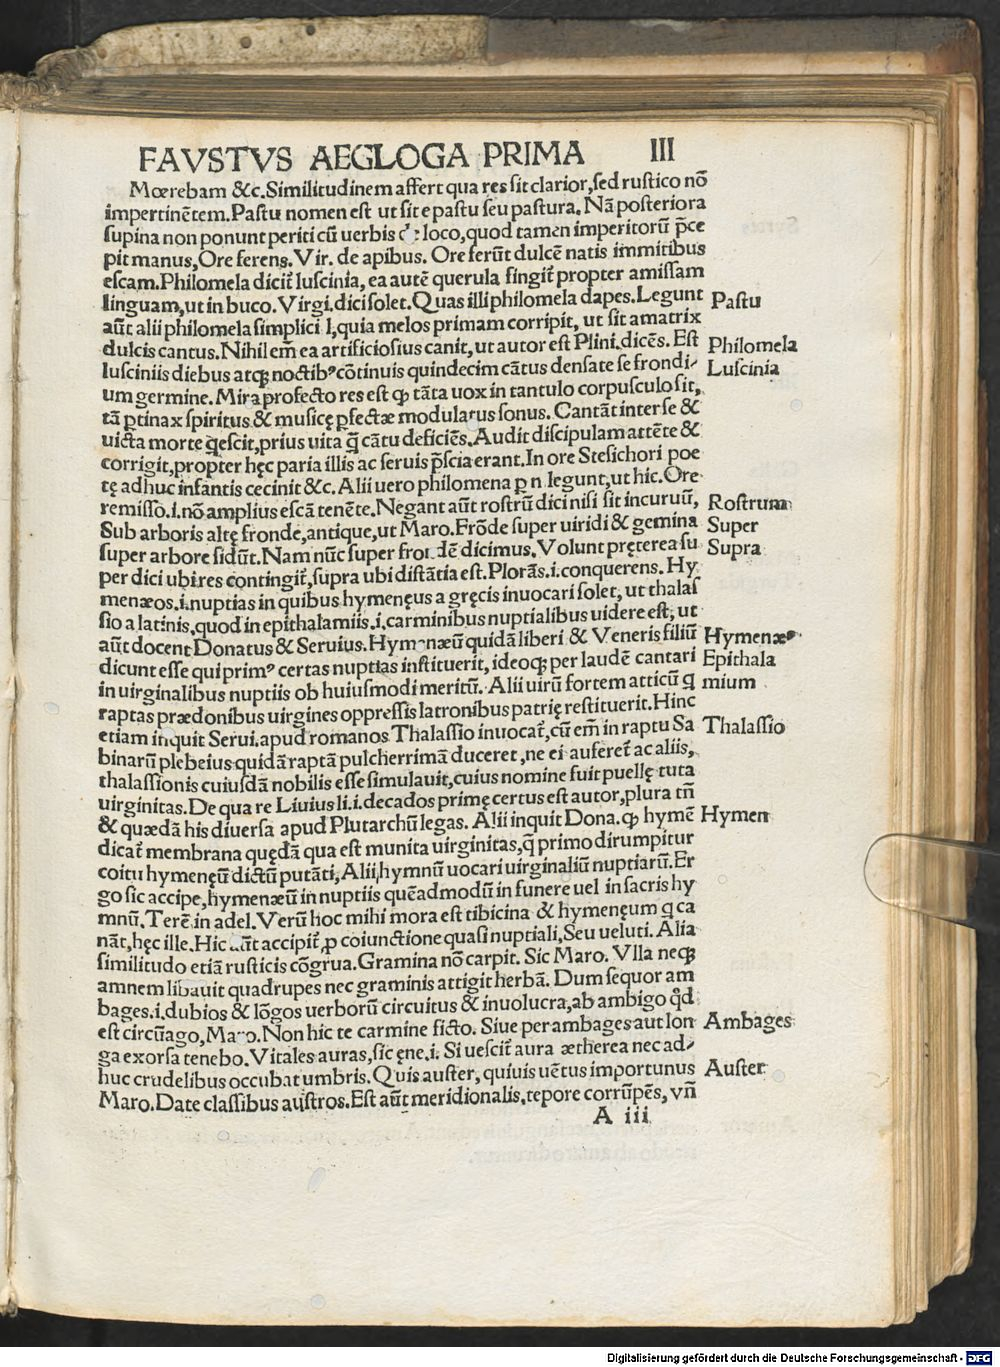 FAVSTVS AEGLOGA PRIMA III
Mœrebam &c. Similitudinem affert qua res sit clarior, sed rustico nō
impertinētem. Pastu nomen est ut sit e pastu seu pastura. Nā posteriora
supina non ponunt periti cū uerbis de loco, quod tamen imperitorū p̄ce
pit manus, Ore ferens. Vir. de apibus. Ore ferūt dulcē natis immitibus
escam. Philomela dicit᷑ luscinia, ea autē querula fingit᷑ propter amissam
linguam, ut in buco. Virgi. dici solet. Quas illi philomela dapes. Legunt
Pastu
aūt alii philomela simplici l, quia melos primam corripit, ut sit amatrix
dulcis cantus. Nihil em̄ ea artificiosius canit, ut autor est Plini. dicēs. Est
Philomela
lusciniis diebus atqꝫ noctibꝰ cōtinuis quindecim cātus densate se frondi⸗
Luscinia
um germine. Mira profecto res est ꝙ tāta uox in tantulo corpusculo sit,
tā ꝑtinax spiritus & musicę ꝑfectæ modulatus sonus. Cantāt inter se &
uicta morte q̄escit, prius uita q̄̄ cātu deficiēs. Audit discipulam attēte &
corrigit, propter hęc paria illis ac seruis p̄scia erant. In ore Stesichori poe
tę adhuc infantis cecinit &c. Alii uero philomena ꝑ n legunt, ut hic. Ore
remisso. i. nō amplius escā tenēte. Negant aūt rostrū dici nisi sit incuruū,
Rostrum
Sub arboris altę fronde, antique, ut Maro. Frōde super uiridi & gemina
Super
super arbore sidūt. Nam nūc super frondē dicimus. Volunt pręterea su
Supra
per dici ubi res contingit᷑, supra ubi distātia est. Plorās. i. conquerens. Hy
menæos. i. nuptias in quibus hymenęus a gręcis inuocari solet, ut thalas
sio a latinis, quod in epithalamiis. i. carminibus nuptialibus uidere est, ut
aūt docent Donatus & Seruius. Hymenæū quidā liberi & Veneris filiū
Hymenæꝰ
dicunt esse qui primꝰ certas nuptias instituerit, ideoqꝫ per laudē cantari
Epithala
in uirginalibus nuptiis ob huiusmodi meritū. Alii uirū fortem atticū q
mium
raptas prædonibus uirgines oppressis latronibus patrię restituerit. Hinc
etiam inquit Serui. apud romanos Thalassio inuocat᷑, cū em̄ in raptu Sa
Thalassio
binarū plebeius quidā raptā pulcherrimā duceret, ne ei auferet᷑ ac aliis,
thalassionis cuiusdā nobilis esse simulauit, cuius nomine fuit puellę tuta
uirginitas. De qua re Liuius li. i. decados primę certus est autor, plura tn̄
& quædā his diuersa apud Plutarchū legas. Alii inquit Dona. ꝙ hymē
Hymen
dicat᷑ membrana quędā qua est munita uirginitas, q̄ primo dirumpitur
coitu hymenęū dictū putāti, Alii, hymnū uocari uirginaliū nuptiarū. Er
go sic accipe, hymenæū in nuptiis quēadmodū in funere uel in sacris hy
mnū. Terē. in adel. Verū hoc mihi mora est tibicina & hymenęum q ca
nāt, hęc ille. Hic aūt accipit᷑ ꝓ coiunctione quasi nuptiali, Seu ueluti. Alia
similitudo etiā rusticis cōgrua. Gramina nō carpit. Sic Maro. Vlla neqꝫ
amnem libauit quadrupes nec graminis attigit herbā. Dum sequor am
bages. i. dubios & lōgos uerborū circuitus & inuolucra, ab ambigo qd̄
est circūago, Maro. Non hic te carmine ficto. Siue per ambages aut lon
Ambages
ga exorsa tenebo. Vitales auras, sic ęne. i. Si uescit᷑ aura ætherea nec ad⸗
huc crudelibus occubat umbris. Quis auster, quiuis uētus importunus
Auster
Maro. Date classibus austros. Est aūt meridionalis, tepore corrūpēs, vn̄
A iii
Digitalisierung gefördert durch die Deutsche Forschungsgemeinschaft - DFG